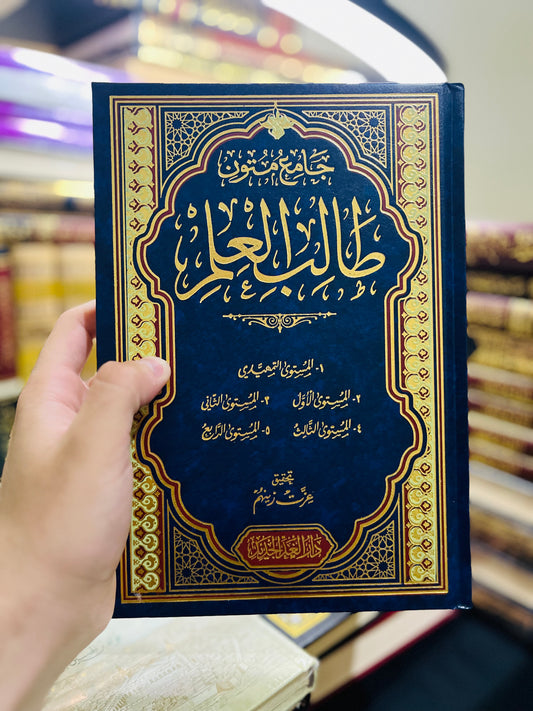 جامع متون
طَالِبِ العِلْمِ
١- المستوى التمهيدي
٢- المستوى الأول ٣- المستوى الثاني
٤- المستوى الثالث ٥- المستوى الرابع
تحقيق
عزت زينهم
دار الغد الجديد